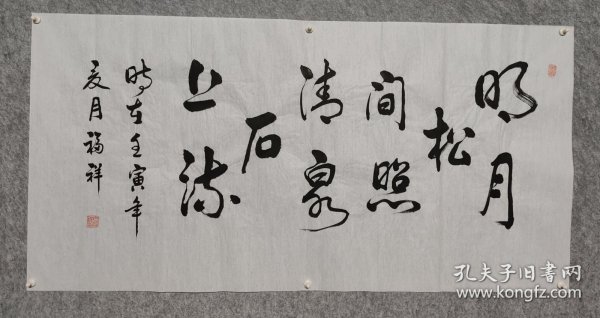 明月
松
间照
清泉
石
上流
時在壬寅年
夏月福祥
孔夫子旧书网
www.kongfz.com